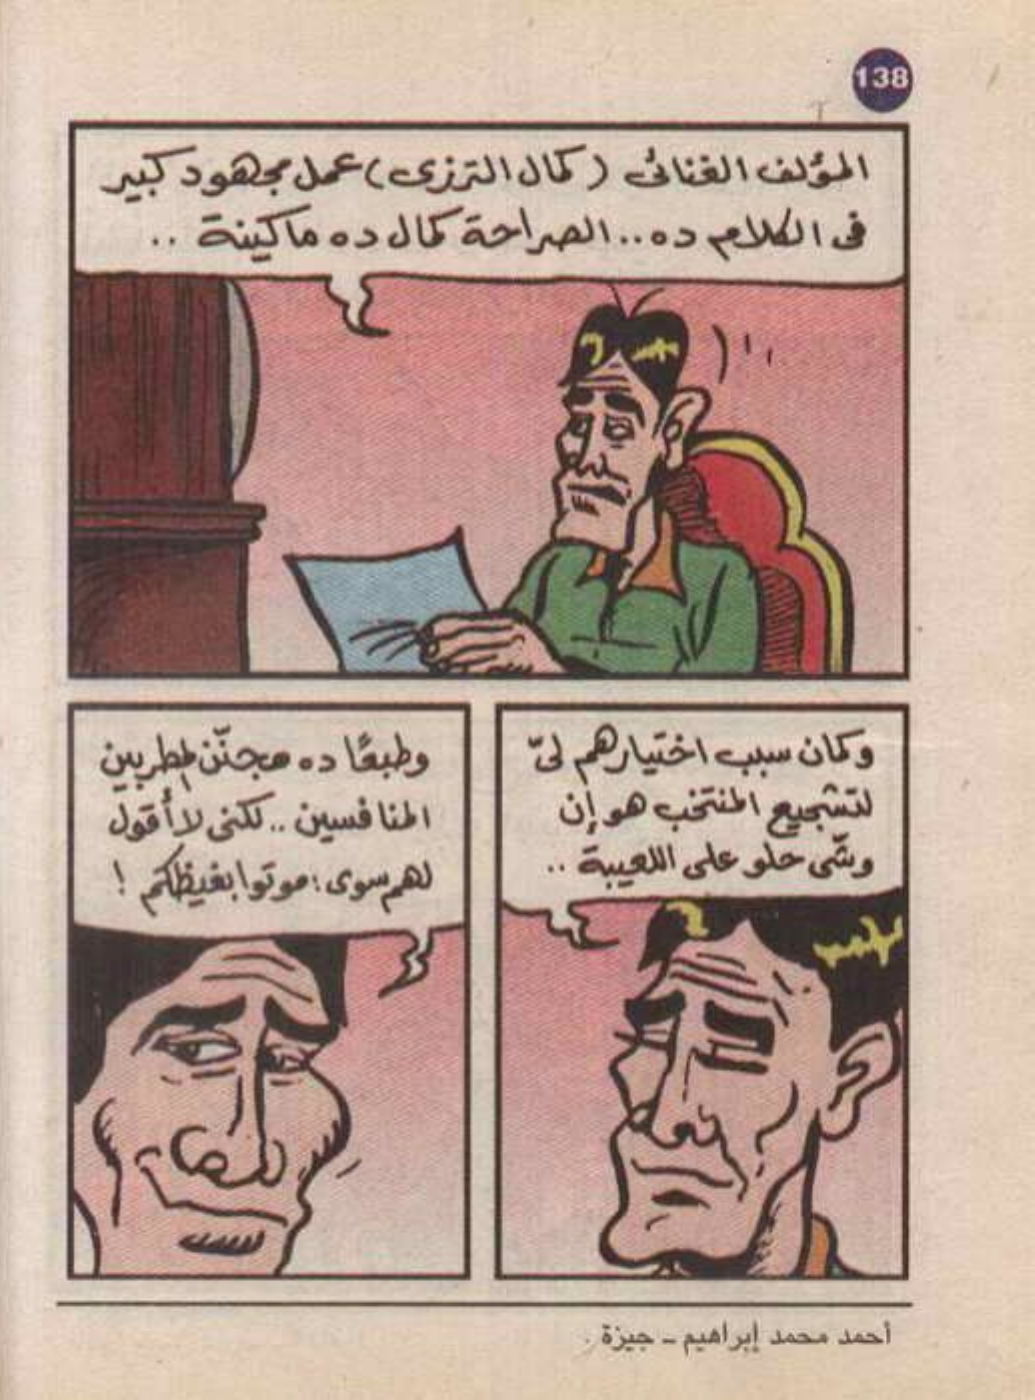 138
المؤلف الغنائى (كمال الترزى) عمل مجهود كبير
فى الكلام ده.. الصراحة كمال ده ماكينة ..
وكمان سبب اختيارهم لىّ
لتشجيع المنتخب هو إن
وشّى حلو على اللعيبة ..
وطبعًا ده مجنّن المطربين
المنافسين .. لكنى لا أقول
لهم سوى: موتوا بغيظكم !
أحمد محمد إبراهيم - جيزة .